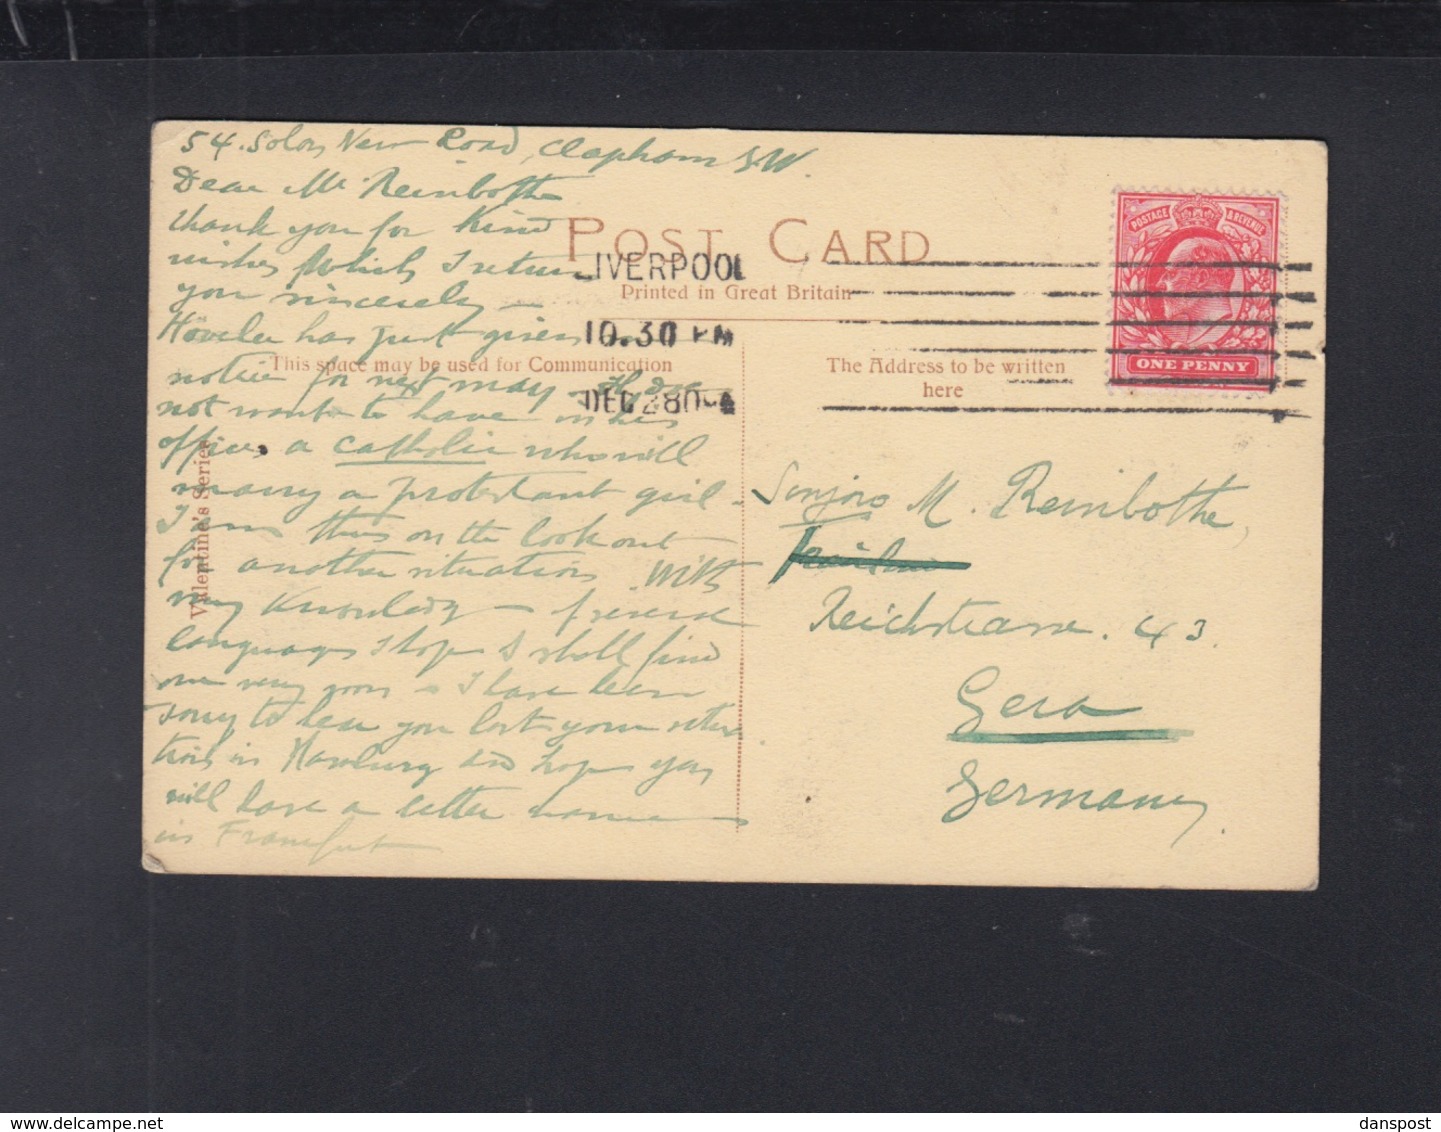 54. Solon New Road, Clapham S.W.
Dear Mr Reinbothe
thank you for kind
wishes which I return
you sincerely —
Höveler has just given me
notice for next may -
not want to have in his
office a catholic who will
marry a protestant girl -
I am thus on the look out
for another situation. With
my knowledge
languages I hope I shall find
one very soon - I have been
sorry to hear you lost your situa
tion in Hamburg and hope you
will have a better
in Frankfurt
POST CARD
Printed in Great Britain
This space may be used for Communication
The Address to be written
here
Valentine's Series
LIVERPOOL
10.30 PM
DEC 28 04
POSTAGE & REVENUE
ONE PENNY
M. Reinbothe,
Reichstrasse. 43
Gera
Germany
danspost